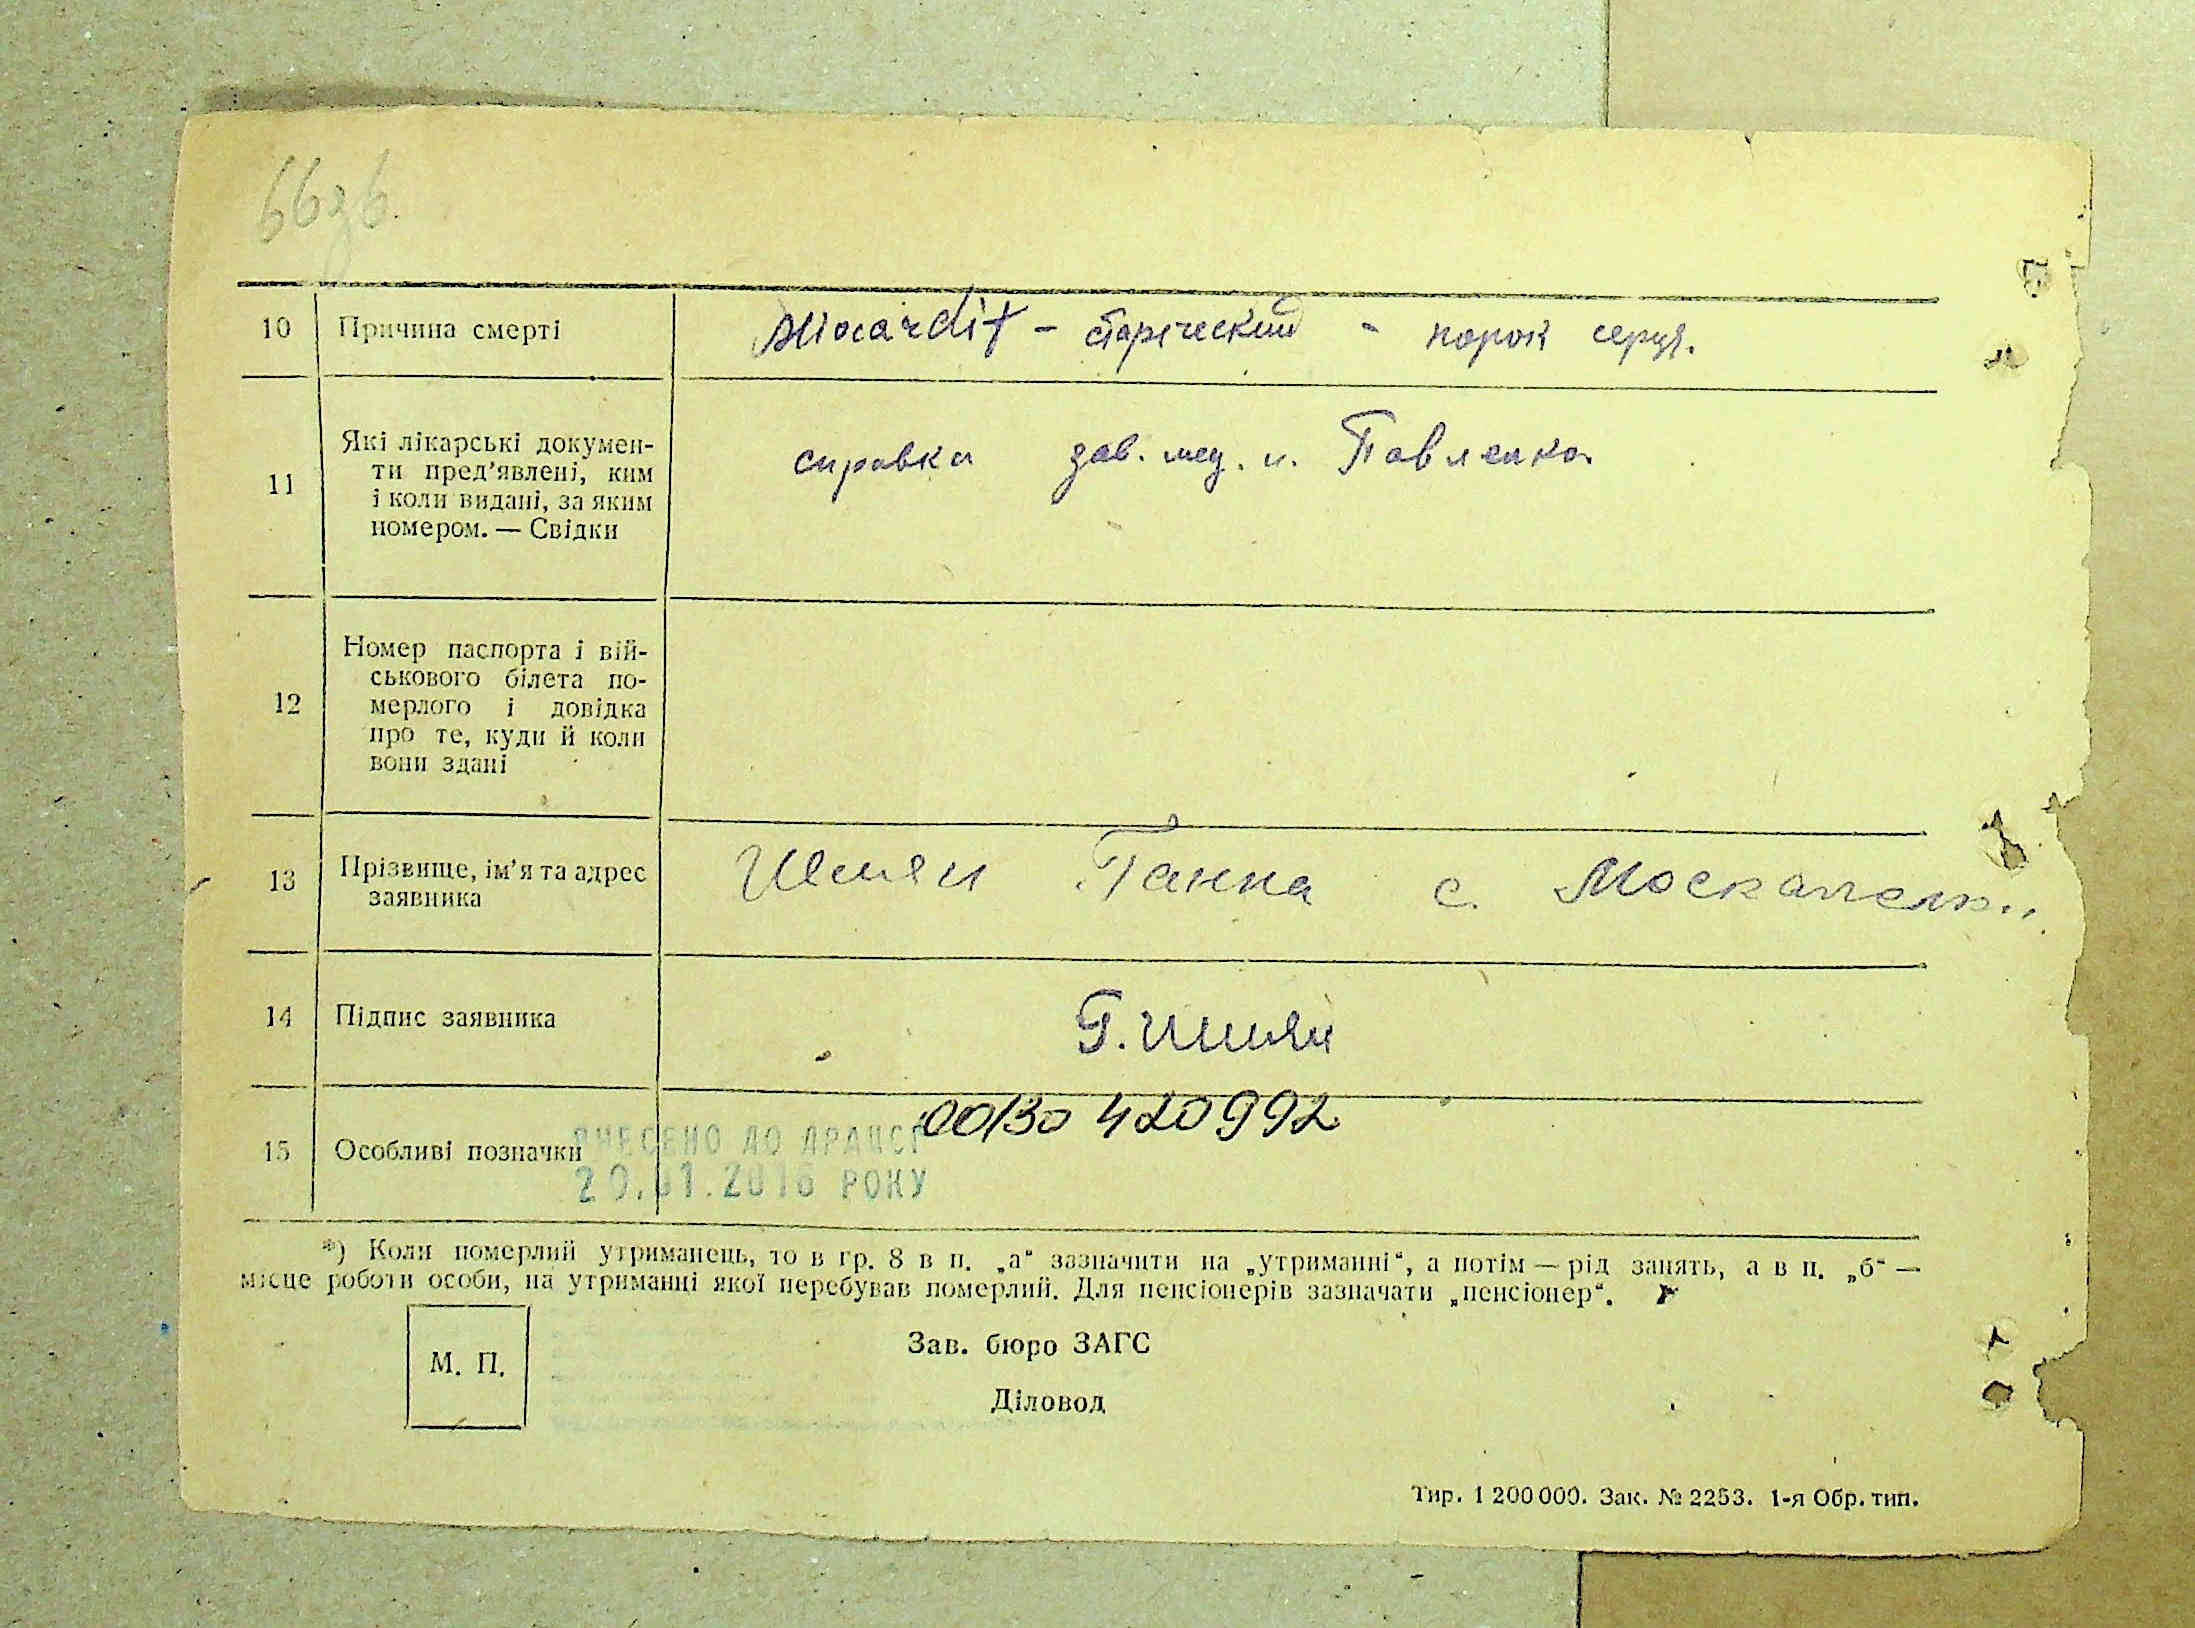 66зв.
10 Причина смерті Miocardit - старческий - порок серця.
11 Які лікарські докумен-
ти пред'явлені, ким
і коли видані, за яким
номером. — Свідки
справка зав. мед. п. Павленко
12 Номер паспорта і вій-
ськового білета по-
мерлого і довідка
про те, куди й коли
вони здані
13 Прізвище, ім'я та адрес
заявника
Ганна с.
14 Підпис заявника Г.
00130 420992
15 Особливі позначки
ВНЕСЕНО ДО ДРАЦСГ
20.01.2016 РОКУ
*) Коли померлий утриманець, то в гр. 8 в п. „а“ зазначити на „утриманні“, а потім — рід занять, а в п. „б“ —
місце роботи особи, на утриманні якої перебував померлий. Для пенсіонерів зазначати „пенсіонер“.
М. П.
Зав. бюро ЗАГС
Діловод
Тир. 1 200 000. Зак. № 2253. 1-я Обр. тип.